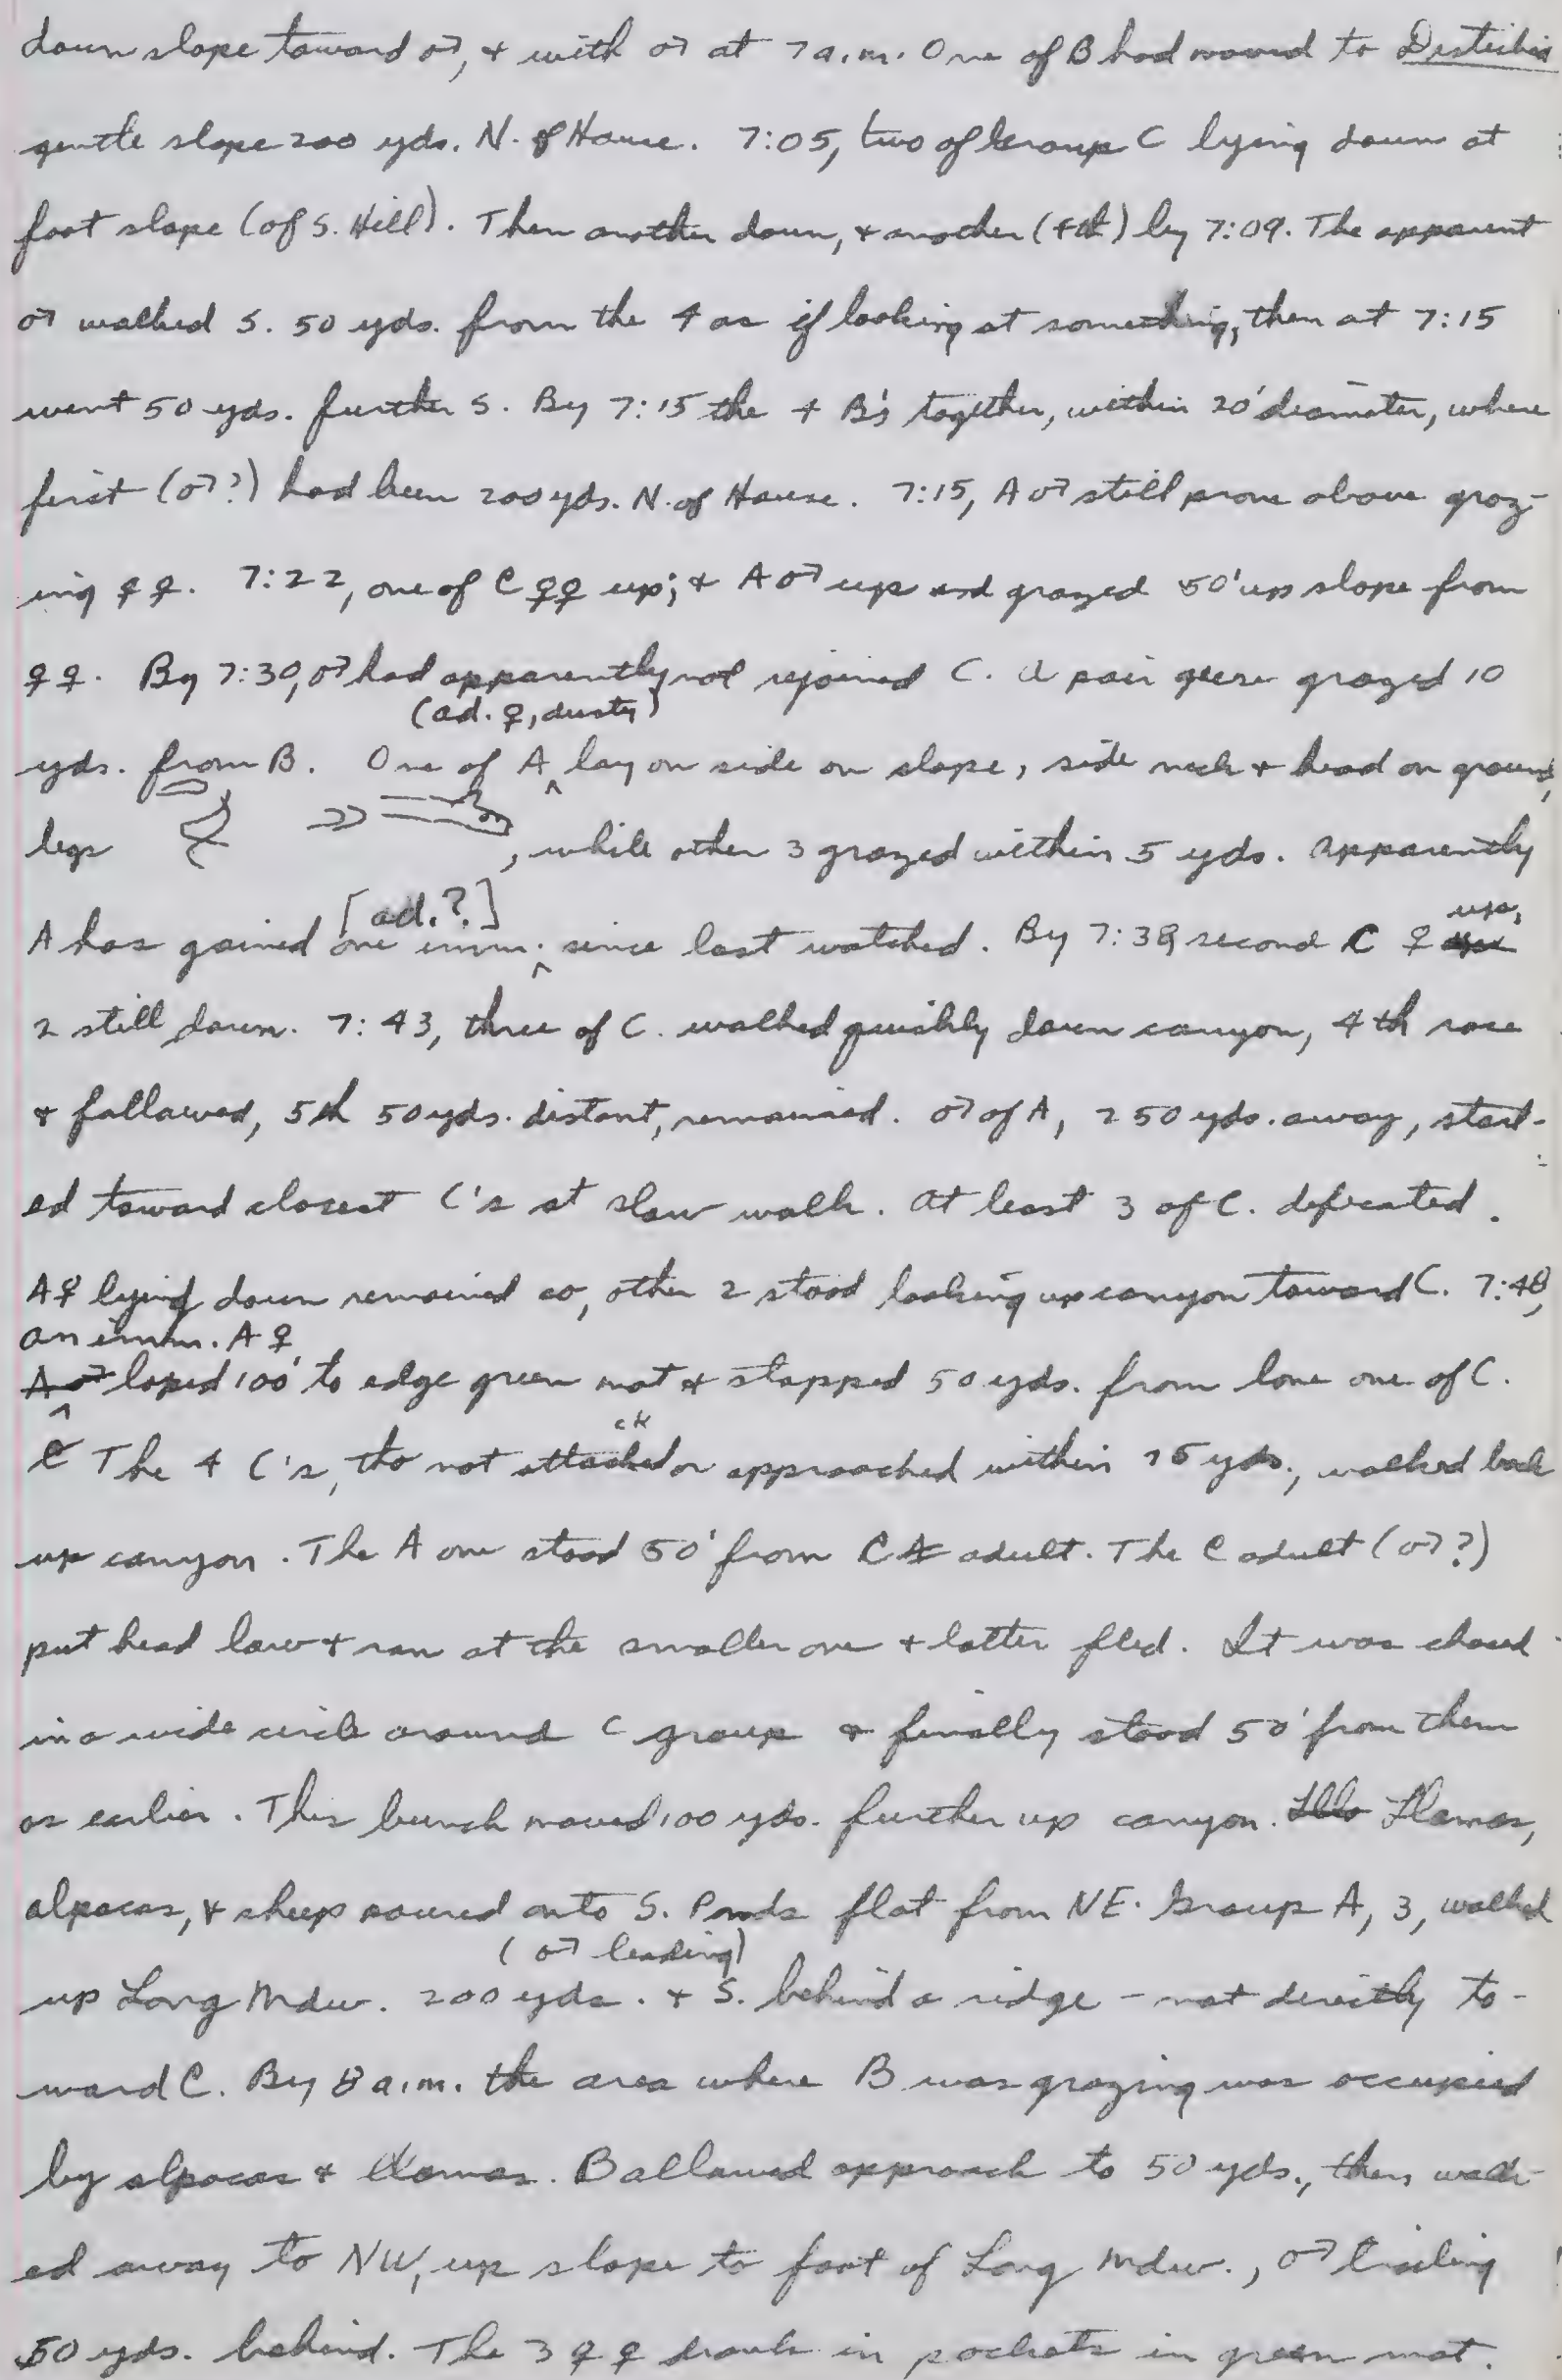 down slope toward ♂, + with ♂ at 7 a.m. One of B had moved to Distichia
gentle slope 200 yds. N. of House. 7:05, two of Group C lying down at
foot slope (of S. Hill). Then another down, + another (4th) by 7:09. The apparent
♂ walked S. 50 yds. from the 4 as if looking at something, then at 7:15
went 50 yds. further S. By 7:15 the 4 B's together, within 20' diameter, where
first (♂?) had been 200 yds. N. of House. 7:15, A ♂ still prone above graz-
ing ♀♀. 7:22, one of C ♀♀ up; + A ♂ up and grazed 50' up slope from
♀♀. By 7:30, ♂ had apparently not rejoined C. A pair geese grazed 10
(ad. ♀, dusty)
yds. from B. One of A ^ lay on side on slope, side neck + head on ground,
legs , while other 3 grazed within 5 yds. Apparently
[ad.?]
A has gained one imm. ^ since last watched. By 7:38 second C ♀ up,
2 still down. 7:43, three of C. walked quickly down canyon, 4th rose
+ followed, 5th 50 yds. distant, remained. ♂ of A, 250 yds. away, start-
ed toward closest C's at slow walk. At least 3 of C. defecated.
A♀ lying down remained so, other 2 stood looking up canyon toward C. 7:48,
an imm. A ♀
A ♂ ^ loped 100' to edge green mat + stopped 50 yds. from lone one of C.
The 4 C's, tho not attacked or approached within 75 yds., walked back
up canyon. The A one stood 50' from C adult. The C adult (♂?)
put head low + ran at the smaller one + latter fled. It was chased
in a wide circle around C group + finally stood 50' from them
as earlier. This bunch moved 100 yds. further up canyon. Llamas,
alpacas, + sheep poured onto S. Ponds flat from NE. Group A, 3, walked
(♂ leading)
up Long Mdw. 200 yds. + S. behind a ridge - not directly to-
ward C. By 8 a.m. the area where B was grazing was occupied
by alpacas + llamas. B allowed approach to 50 yds., then walk-
ed away to NW, up slope to foot of Long Mdw., ♂ trailing
50 yds. behind. The 3 ♀♀ drank in pockets in green mat.